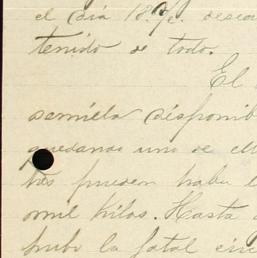 el día 18 desea
tenido de todo.
El
semilla disponib
quedando uno de ell
tos pueden haber
mil kilos. Hasta
hubo la fatal cir